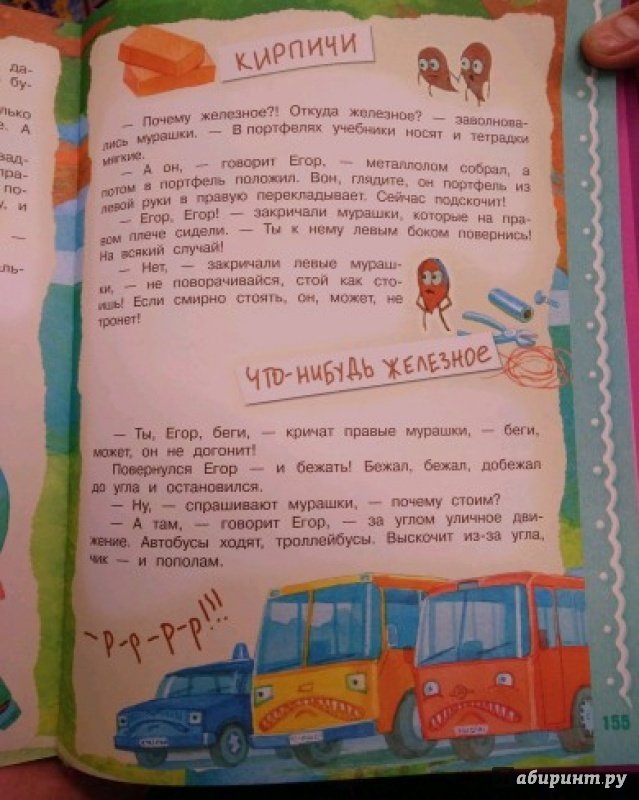 да-
бу-
лько
е. А
вад-
пра-
по-
у, и
—
ль-
КИРПИЧИ
— Почему железное?! Откуда железное? — заволнова-
лись мурашки. — В портфелях учебники носят и тетрадки
мягкие.
— А он, — говорит Егор, — металлолом собрал, а
потом в портфель положил. Вон, глядите, он портфель из
левой руки в правую перекладывает. Сейчас подскочит!
— Егор, Егор! — закричали мурашки, которые на пра-
вом плече сидели. — Ты к нему левым боком повернись!
На всякий случай!
— Нет, — закричали левые мураш-
ки, — не поворачивайся, стой как сто-
ишь! Если смирно стоять, он, может, не
тронет!
ЧТО-НИБУДЬ ЖЕЛЕЗНОЕ
— Ты, Егор, беги, — кричат правые мурашки, — беги,
может, он не догонит!
Повернулся Егор — и бежать! Бежал, бежал, добежал
до угла и остановился.
— Ну, — спрашивают мурашки, — почему стоим?
— А там, — говорит Егор, — за углом уличное дви-
жение. Автобусы ходят, троллейбусы. Выскочит из-за угла,
чик — и пополам.
-Р-р-р-р!!!
155
абиринт.ру